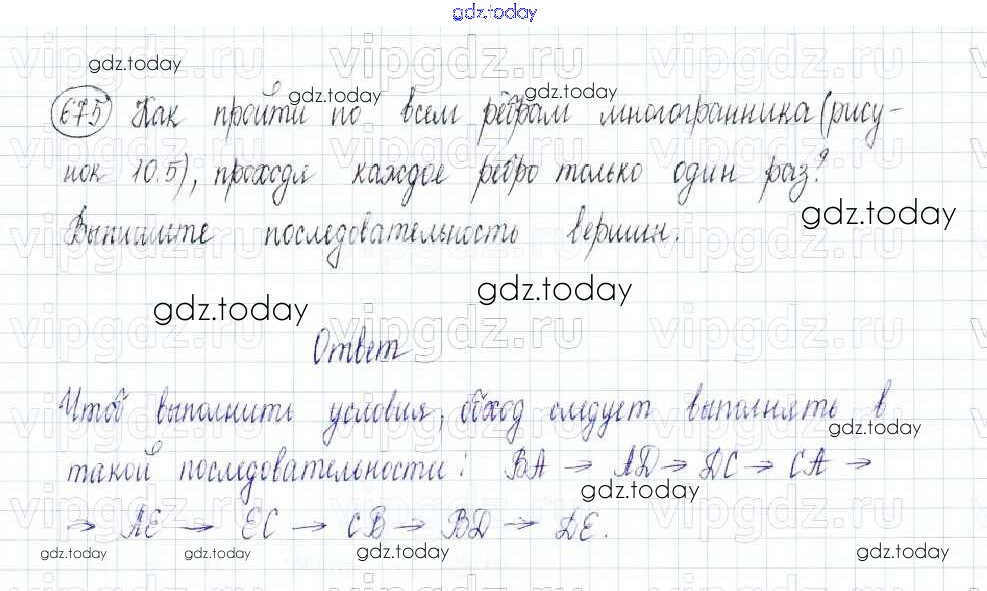 gdz.today
gdz.today
675 Как пройти по всем рёбрам многогранника (рису-
gdz.today gdz.today
нок 10.5), проходя каждое ребро только один раз?
gdz.today
Выпишите последовательность вершин.
gdz.today gdz.today
Ответ
Чтоб выполнить условия, обход следует выполнять в
gdz.today
такой последовательности: BA → AD → DC → CA →
gdz.today
→ AE → EC → CB → BD → DE.
gdz.today gdz.today gdz.today gdz.today